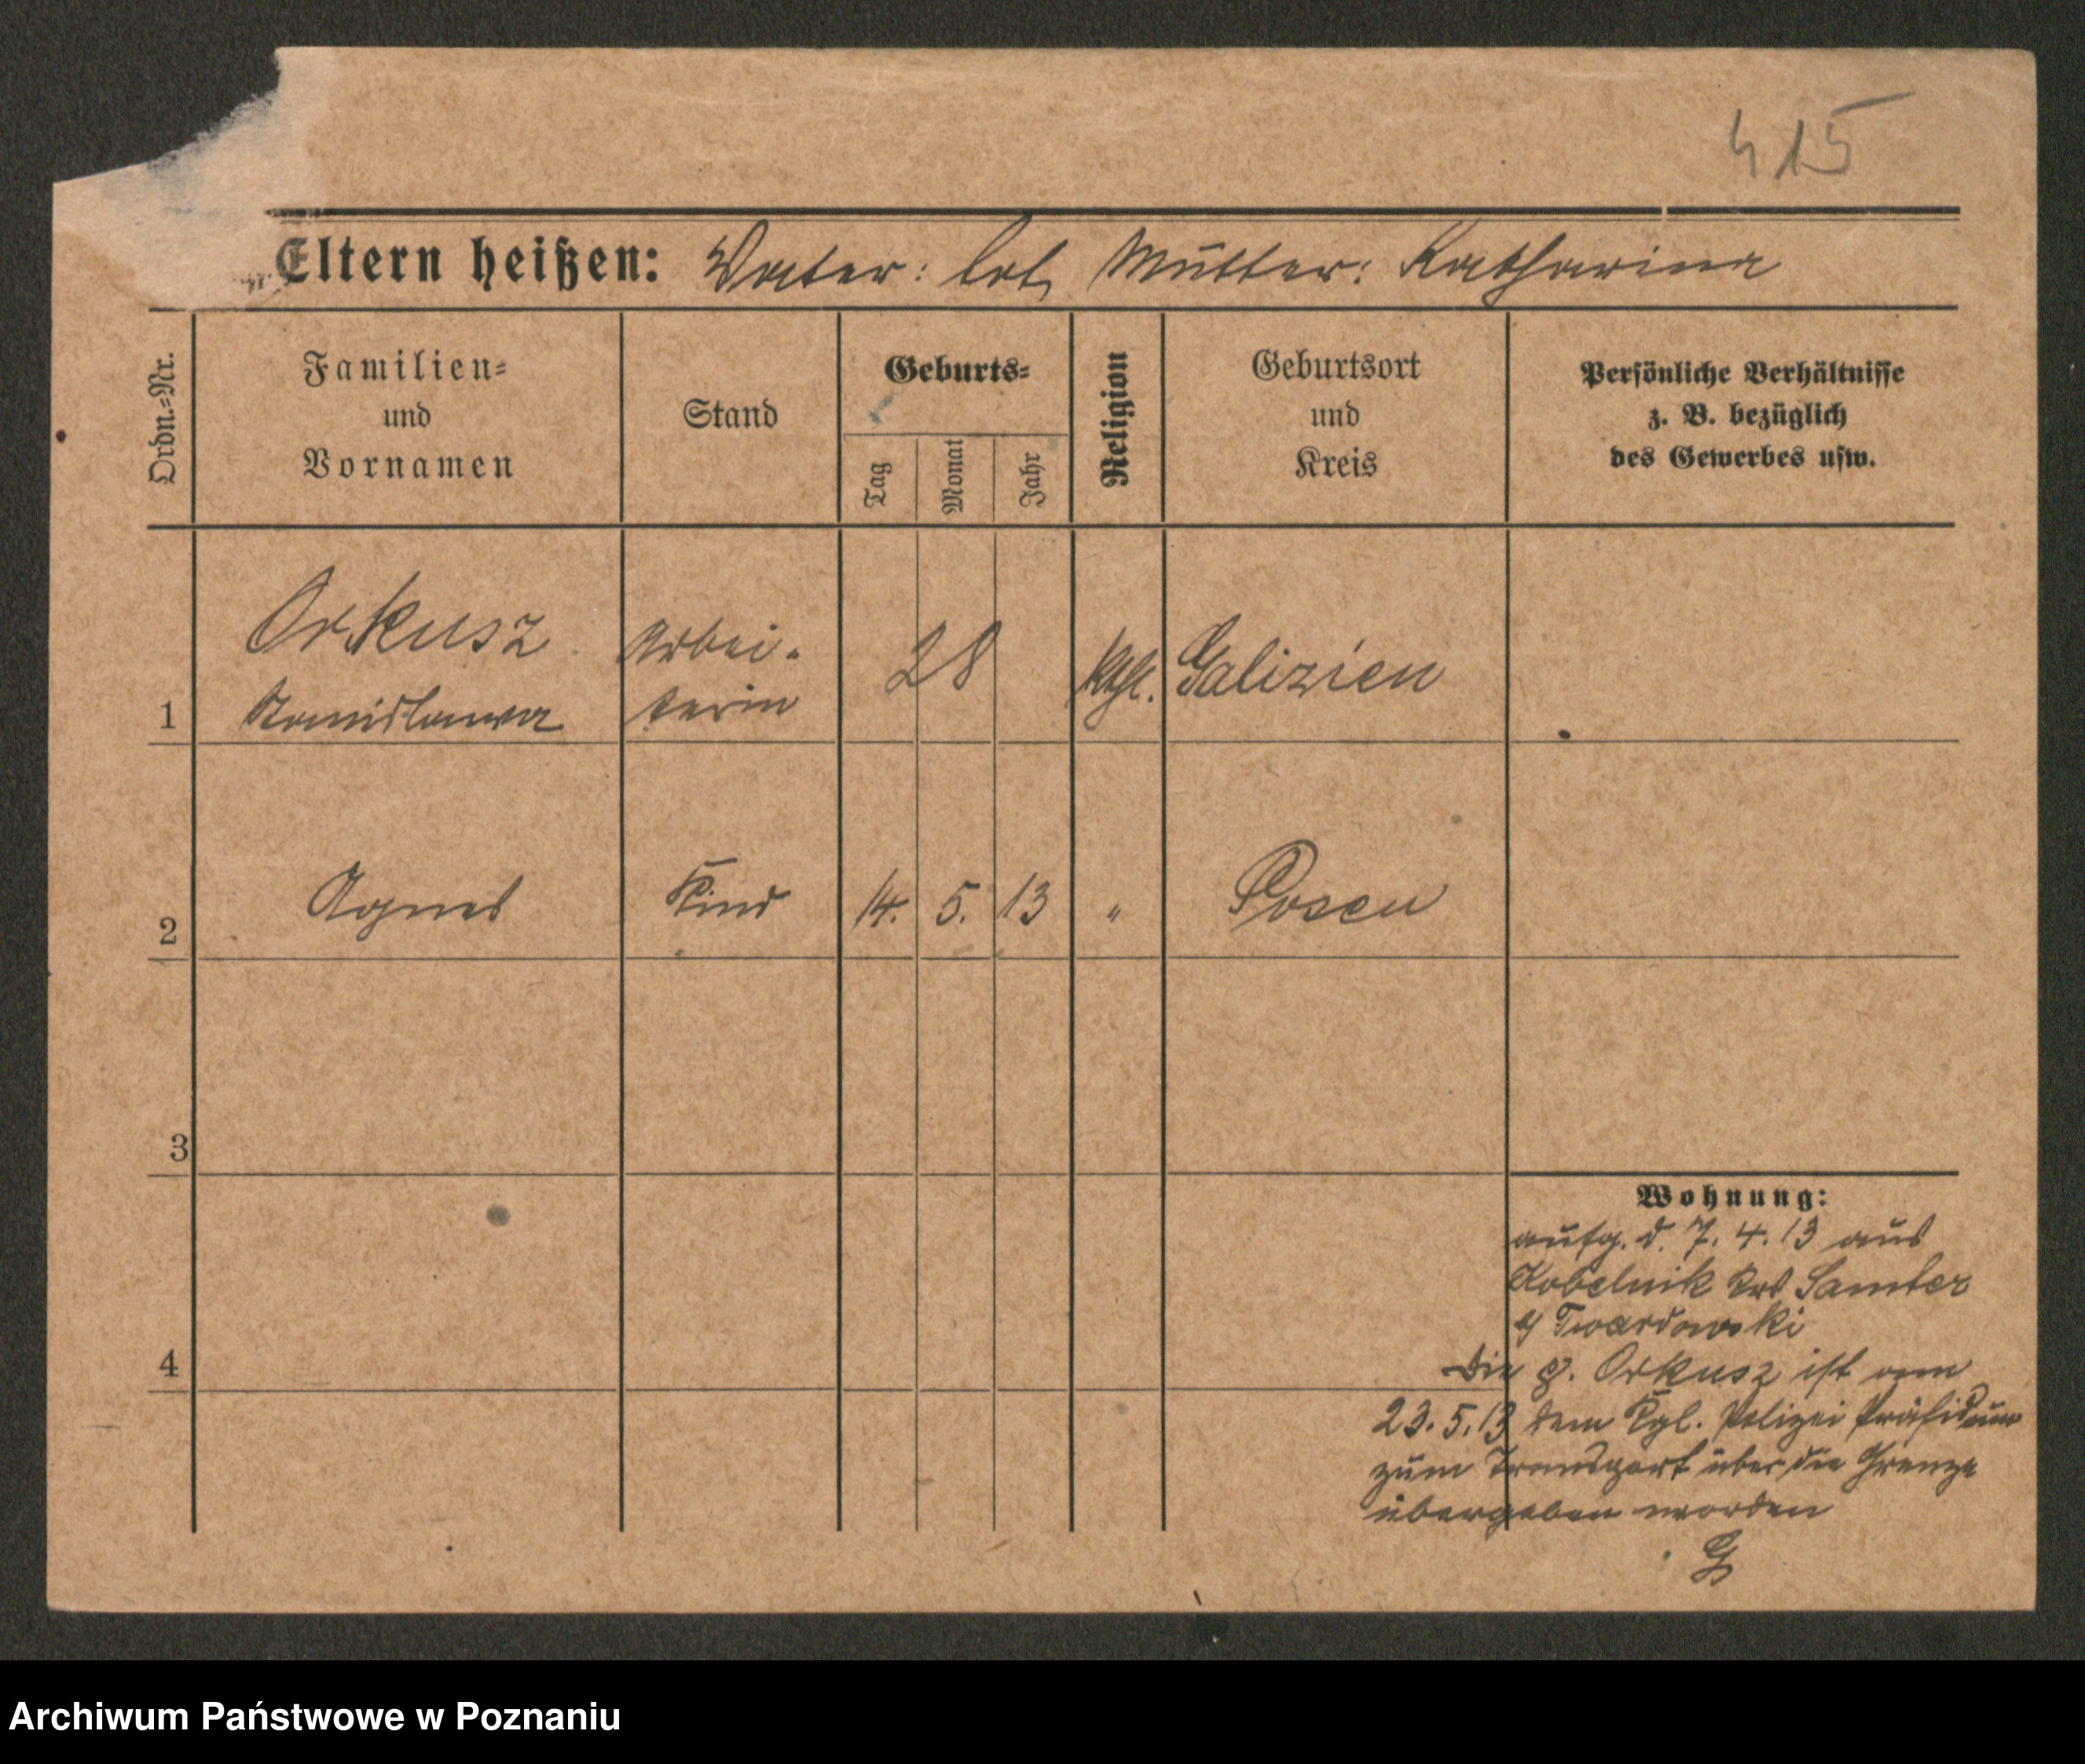 415
Eltern heißen: Vater: tot, Mutter: Katharina
Ordn.-Nr.
Familien-
und
Vornamen
Stand
Geburts-
Tag
Monat
Jahr
Religion
Geburtsort
und
Kreis
Persönliche Verhältnisse
z. B. bezüglich
des Gewerbes usw.
1
Orkusz
Stanislawa
Arbei-
terin
28
Kth.
Galizien
2
Agnes
Kind
14. 5. 13
"
Posen
3
4
Wohnung:
aufg. d. 7. 4. 13 aus
Kobelnik Krs Samter
Twardowski
Die p. Orkusz ist am
23. 5. 13 dem Kgl. Polizei Präsidium
zum Transport über die Grenze
übergeben worden
Archiwum Państwowe w Poznaniu